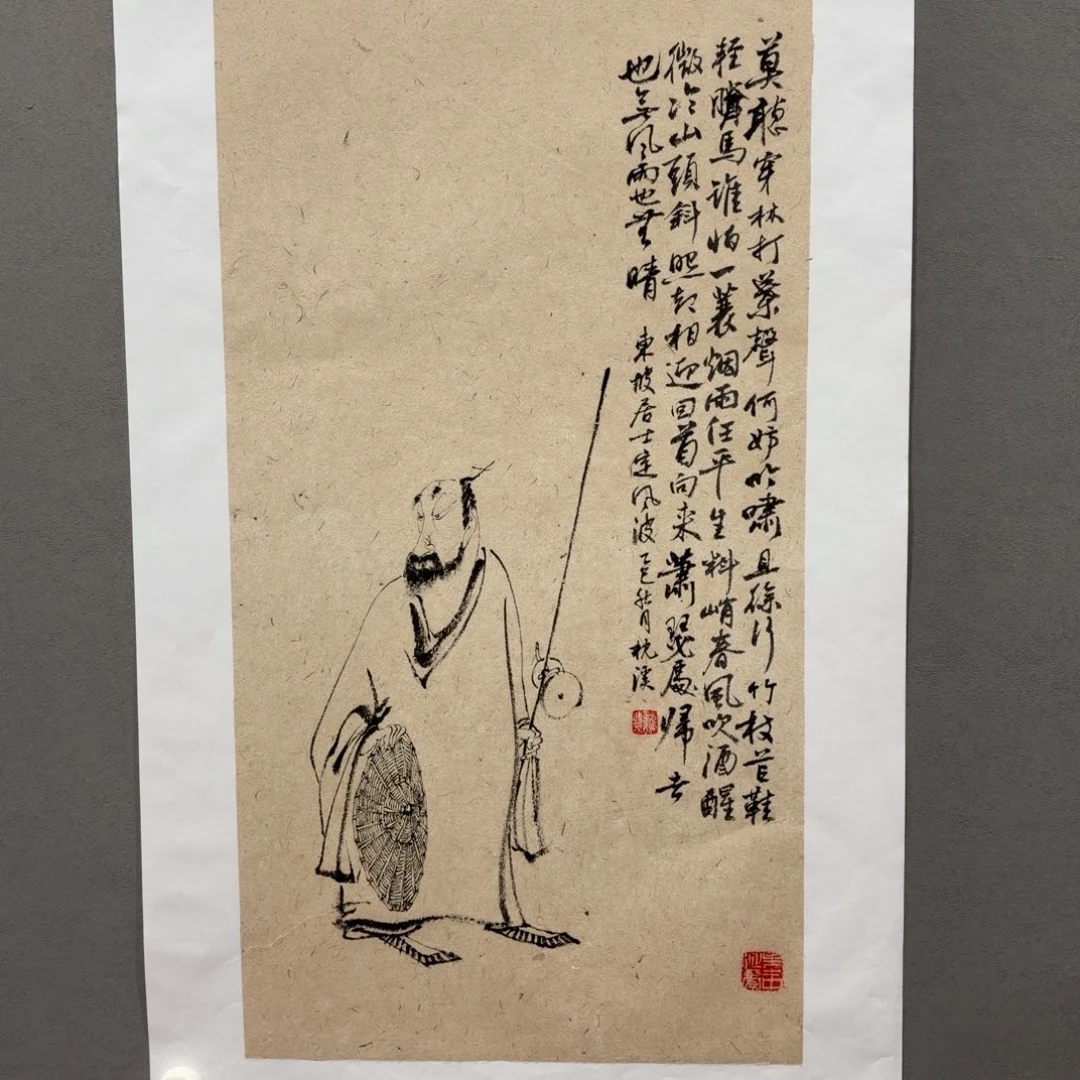 莫聽穿林打葉聲何妨吟嘯且徐行竹杖芒鞋
輕勝馬誰怕一蓑烟雨任平生料峭春風吹酒醒
微冷山頭斜照却相迎回首向来蕭瑟處歸去
也無風雨也無晴
東坡居士定風波乙巳秋月枕溪